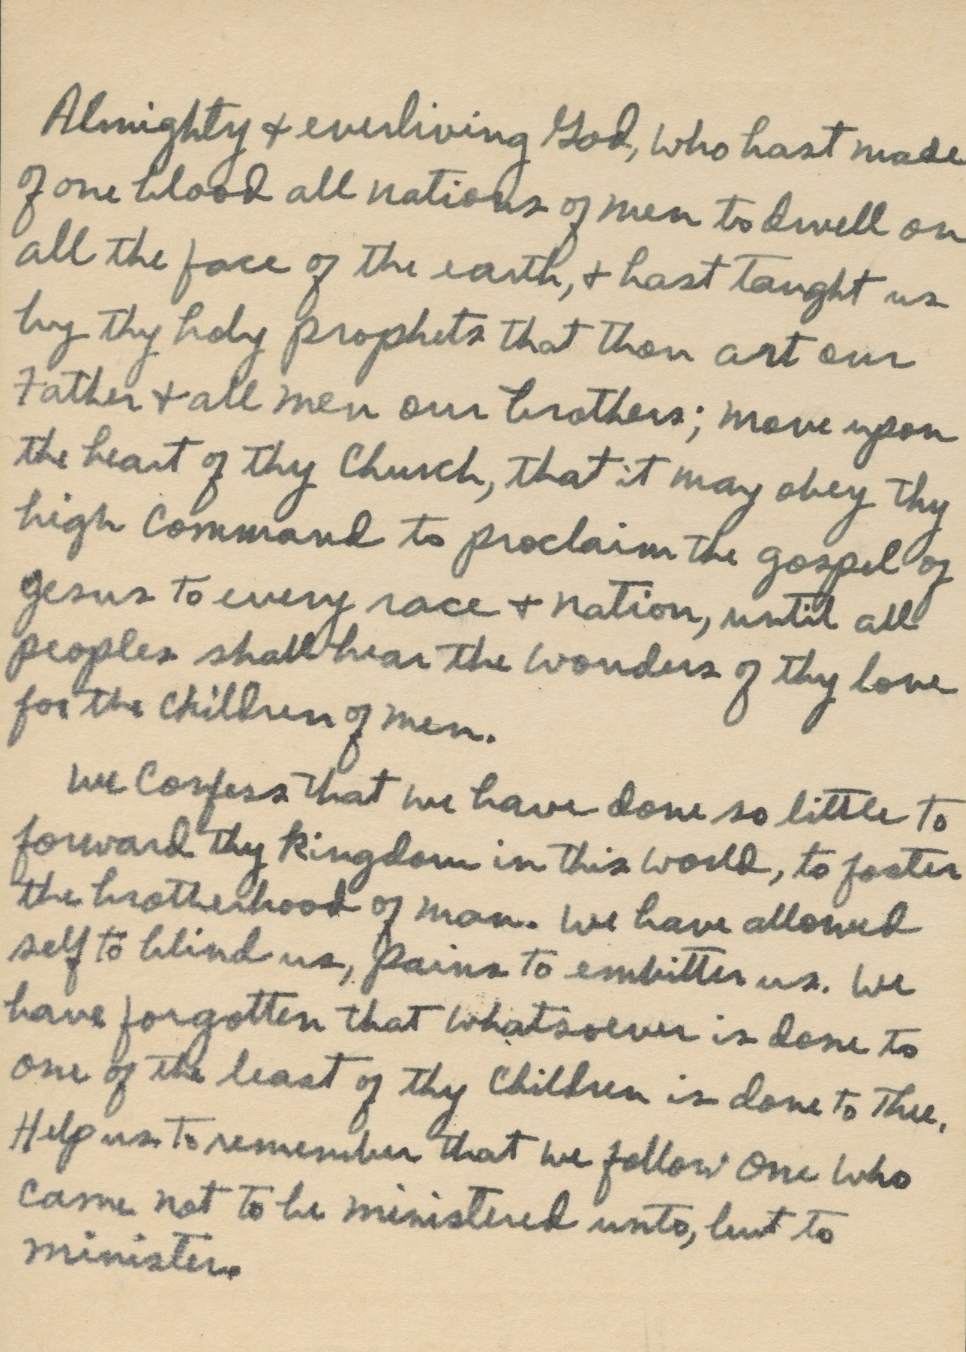 Almighty & everliving God, who hast made
of one blood all nations of men to dwell on
all the face of the earth, & hast taught us
by thy holy prophets that thou art our
Father & all men our brothers; move upon
the heart of thy Church, that it may obey thy
high command to proclaim the gospel of
Jesus to every race & nation, until all
peoples shall hear the wonders of thy love
for the children of men.
We confess that we have done so little to
forward thy kingdom in this world, to foster
the brotherhood of man. We have allowed
self to blind us, pains to embitter us. We
have forgotten that whatsoever is done to
one of the least of thy children is done to Thee.
Help us to remember that we follow One who
came not to be ministered unto, but to
minister.